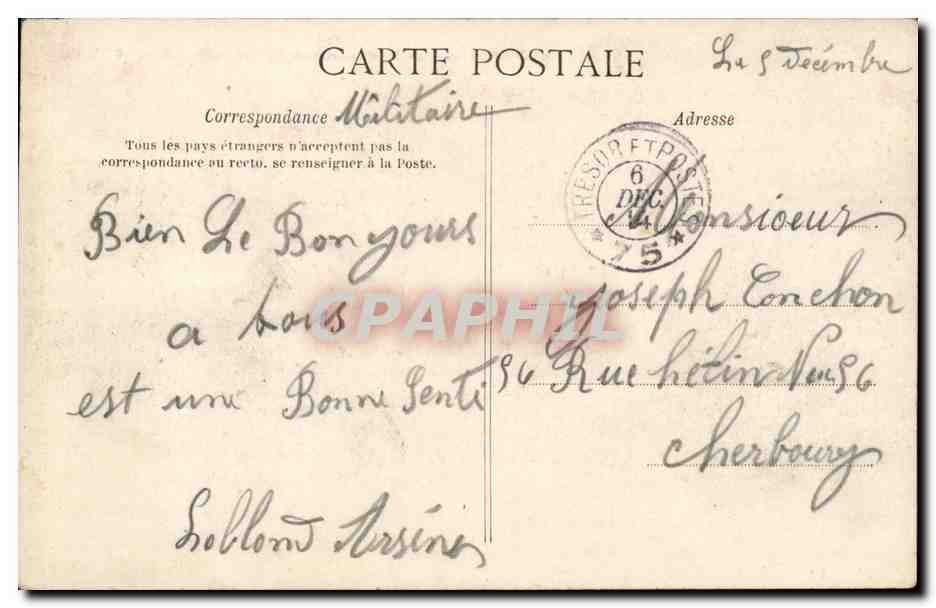 CARTE POSTALE
Le 5 Décembre
Correspondance Militaire
Tous les pays étrangers n'acceptent pas la
correspondance au recto. se renseigner à la Poste.
Bien Le Bon yours
a tous
est une Bonne Senti
Leblond Arsène
Adresse
TRESOR ET POSTES
6
DEC.
14
* 75 *
Monsioeur
Joseph Conchon
56 Rue hélin Nu 56
Cherbourg
CPAPHIL